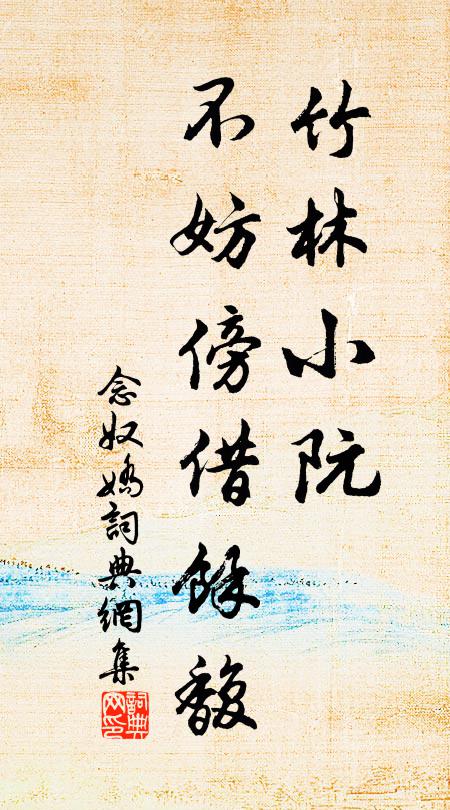 竹林小阮
不妨傍借餘馥
念奴嬌詞典網集
詞典网印